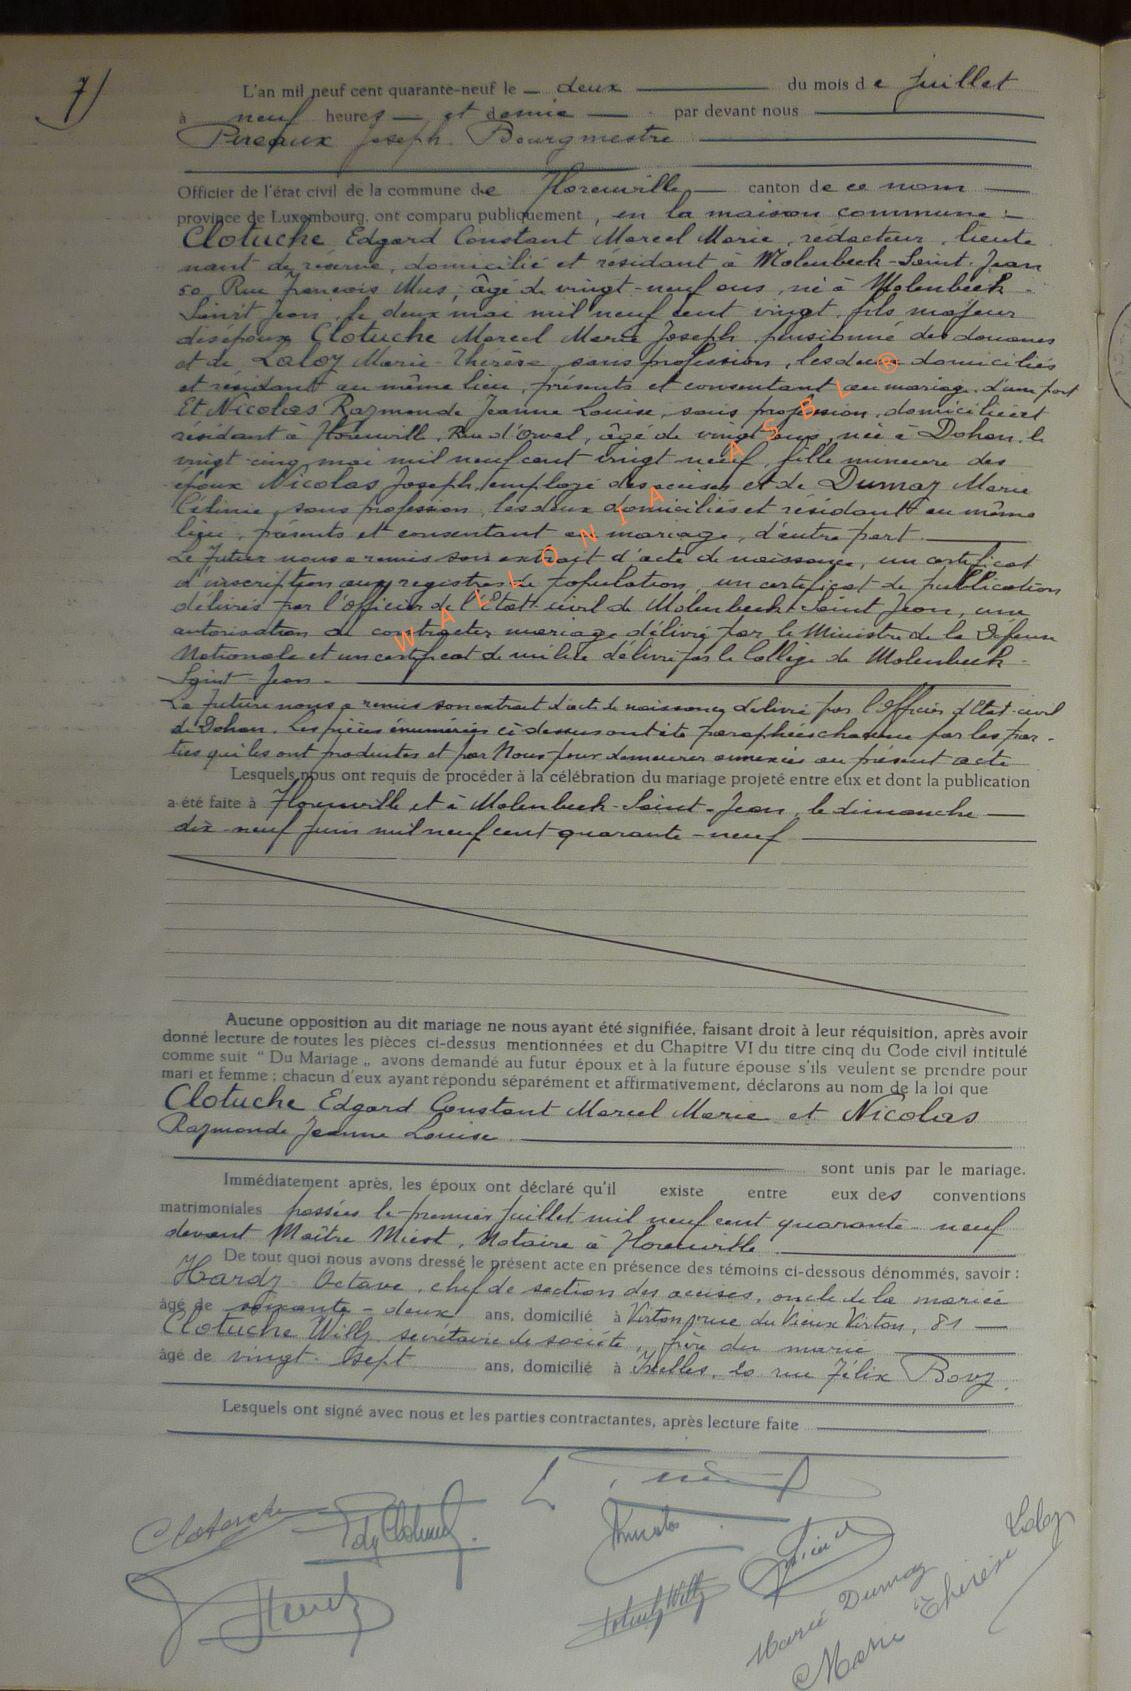 7)
L'an mil neuf cent quarante-neuf le deux du mois de Juillet
à neuf heures et demie par devant nous
Pireaux Joseph Bourgmestre
Officier de l'état civil de la commune de Florenville canton de ce nom
province de Luxembourg, ont comparu publiquement, en la maison commune :
Clotuche Edgard Constant Marcel Marie, rédacteur, lieute
nant de réserve, domicilié et résidant à Molenbeek-Saint-Jean
50 Rue François Mus, âgé de vingt-neuf ans, né à Molenbeek-
Saint Jean, le deux mai mil neuf cent vingt, fils majeur
des époux Clotuche Marcel Marie Joseph, pensionné des douanes
et de Laloy Marie-Thérèse, sans profession, les deux domiciliés
et résidant au même lieu, présents et consentant au mariage, d'une part
Et Nicolas Raymonde Jeanne Louise, sans profession, domiciliée et
résidant à Florenville, Rue d'Orval, âgé de vingt ans, née à Dohan, le
vingt-cinq mai mil neuf cent vingt neuf, fille mineure des
époux Nicolas Joseph, employé des accises et de Dumay Marie
Célinie, sans profession, les deux domiciliés et résidant au même
lieu, présents et consentant au mariage, d'autre part.
Le futur nous a remis son extrait d'acte de naissance, un certificat
d'inscription aux registres de population, un certificat de publication
délivrés par l'Officier de l'Etat-civil de Molenbeek-Saint Jean, une
autorisation de contracter mariage délivré par le Ministre de la Défense
Nationale et un certificat de milice délivré par le Collège de Molenbeek-
Saint-Jean.
La future nous a remis son extrait d'acte de naissance délivré par l'Officier d'Etat-civil
de Dohan. Les pièces énumérées ci-dessus ont été paraphées chacune par les par-
ties qui les ont produites et par Nous pour demeurer annexées au présent acte
Lesquels nous ont requis de procéder à la célébration du mariage projeté entre eux et dont la publication
a été faite à Florenville et à Molenbeek-Saint-Jean, le dimanche
dix-neuf juin mil neuf cent quarante-neuf
Aucune opposition au dit mariage ne nous ayant été signifiée, faisant droit à leur réquisition, après avoir
donné lecture de toutes les pièces ci-dessus mentionnées et du Chapitre VI du titre cinq du Code civil intitulé
comme suit “ Du Mariage „ avons demandé au futur époux et à la future épouse s'ils veulent se prendre pour
mari et femme ; chacun d'eux ayant répondu séparément et affirmativement, déclarons au nom de la loi que
Clotuche Edgard Constant Marcel Marie et Nicolas
Raymonde Jeanne Louise
sont unis par le mariage.
Immédiatement après, les époux ont déclaré qu'il existe entre eux des conventions
matrimoniales passées le premier juillet mil neuf cent quarante-neuf
devant Maître Miest, Notaire à Florenville
De tout quoi nous avons dressé le présent acte en présence des témoins ci-dessous dénommés, savoir :
Hardy Octave, chef de section des accises, oncle de la mariée
âgé de soixante-deux ans, domicilié à Virton, rue du Vieux Virton, 81
Clotuche Willy secrétaire de société, frère du marié
âgé de vingt-sept ans, domicilié à Ixelles, 20 rue Félix Bovy.
Lesquels ont signé avec nous et les parties contractantes, après lecture faite
Clotuche
Nicolas
Clotuche Willy
Marie Dumay
Marie Thérèse Laloy
WALLONIA ASBL ®